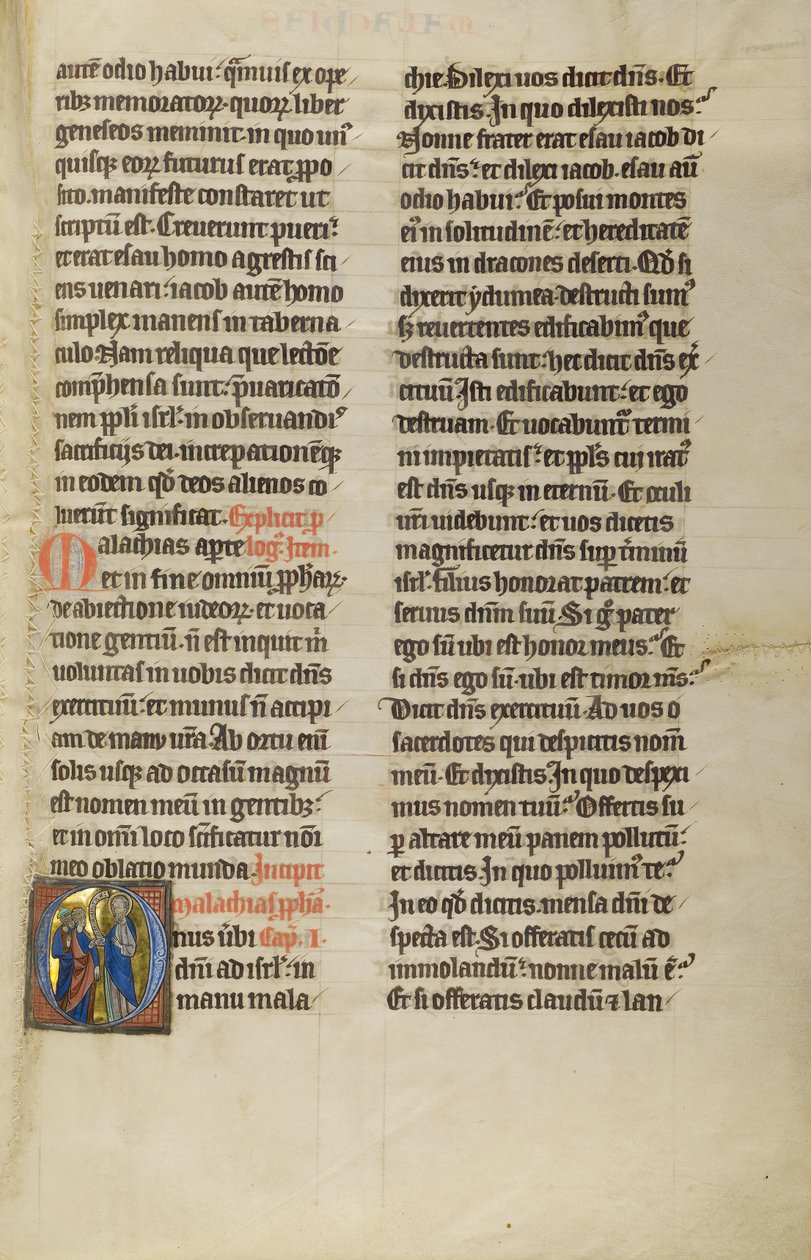 autē odio habui: q̄muis ex ope
ribȝ memoratoꝝ. quoꝝ liber
geneseos meminit. in quo un⁹
quisqȝ eoꝝ futurus erat ꝓpo
sito. manifeste constaret ut
scriptū est. Creuerunt pueri:
et erat esau homo agrestis sci
ens uenari: iacob autē homo
simplex manens in taberna
culo. Nam reliqua que lectōe
comp̄hensa sunt: p̄uaricatō
nem ppl̄i isrl̄: in obseruandis
sacrificijs dei. increpationēqȝ
in eodem qd̄ deos alienos co
luerūt significat. Explicit p
Malachias aperte log⁹. Item.
et in fine omniū ꝓph̄aꝝ.
de abiectione iudeoꝝ. et uoca
tione gentiū. n̄ est inquit m̄
uoluntas in uobis dicit dn̄s
exercituū: et munus n̄ accipi
am de manu ur̄a. Ab ortu eni
solis usqȝ ad occasū magnū
est nomen meū in gentibȝ:
et in omī loco sc̄ificatur nōi
meo oblatio munda. Incipit
malachias ꝓph̄a.
Onus ūbi Cap. I.
dn̄i ad isrl̄: in
manu mala
chie. Dilexi uos dicit dn̄s. Et
dixistis. In quo dilexisti nos:
Nonne frater erat esau iacob di
cit dn̄s: et dilexi iacob. esau aū
odio habui: Et posui montes
ei⁹ in solitudinē: et hereditatē
eius in dracones deserti. Qd̄ si
dixerit ydumea. destructi sum⁹
sȝ reuertentes edificabim⁹ que
destructa sunt: hec dicit dn̄s ex̄
cituū Isti edificabunt: et ego
destruam. Et uocabunt̄ termi
ni impietatis: et ppl̄s cui irat⁹
est dn̄s usqȝ in eternū. Et oculi
ur̄i uidebunt: et uos dicetis
magnificetur dn̄s sup̄ t̄minū
isrl̄. filius honorat patrem: et
seruus dn̄m suū. Si g̊ pater
ego sū ubi est honor meus: Et
si dn̄s ego sū. ubi est timor m̄s:
Dicit dn̄s exercituū. Ad uos o
sacerdotes qui despicitis nom̄
meū. Et dixistis. In quo despexi
mus nomen tuū: Offertis su
ꝑ altare meū panem pollutū:
et dicitis. In quo polluim⁹ te:
In eo qd̄ dicitis. mensa dn̄i de
specta est. Si offeratis cecū ad
immolandū: nonne malū ē:
Et si offeratis claudū ⁊ lan